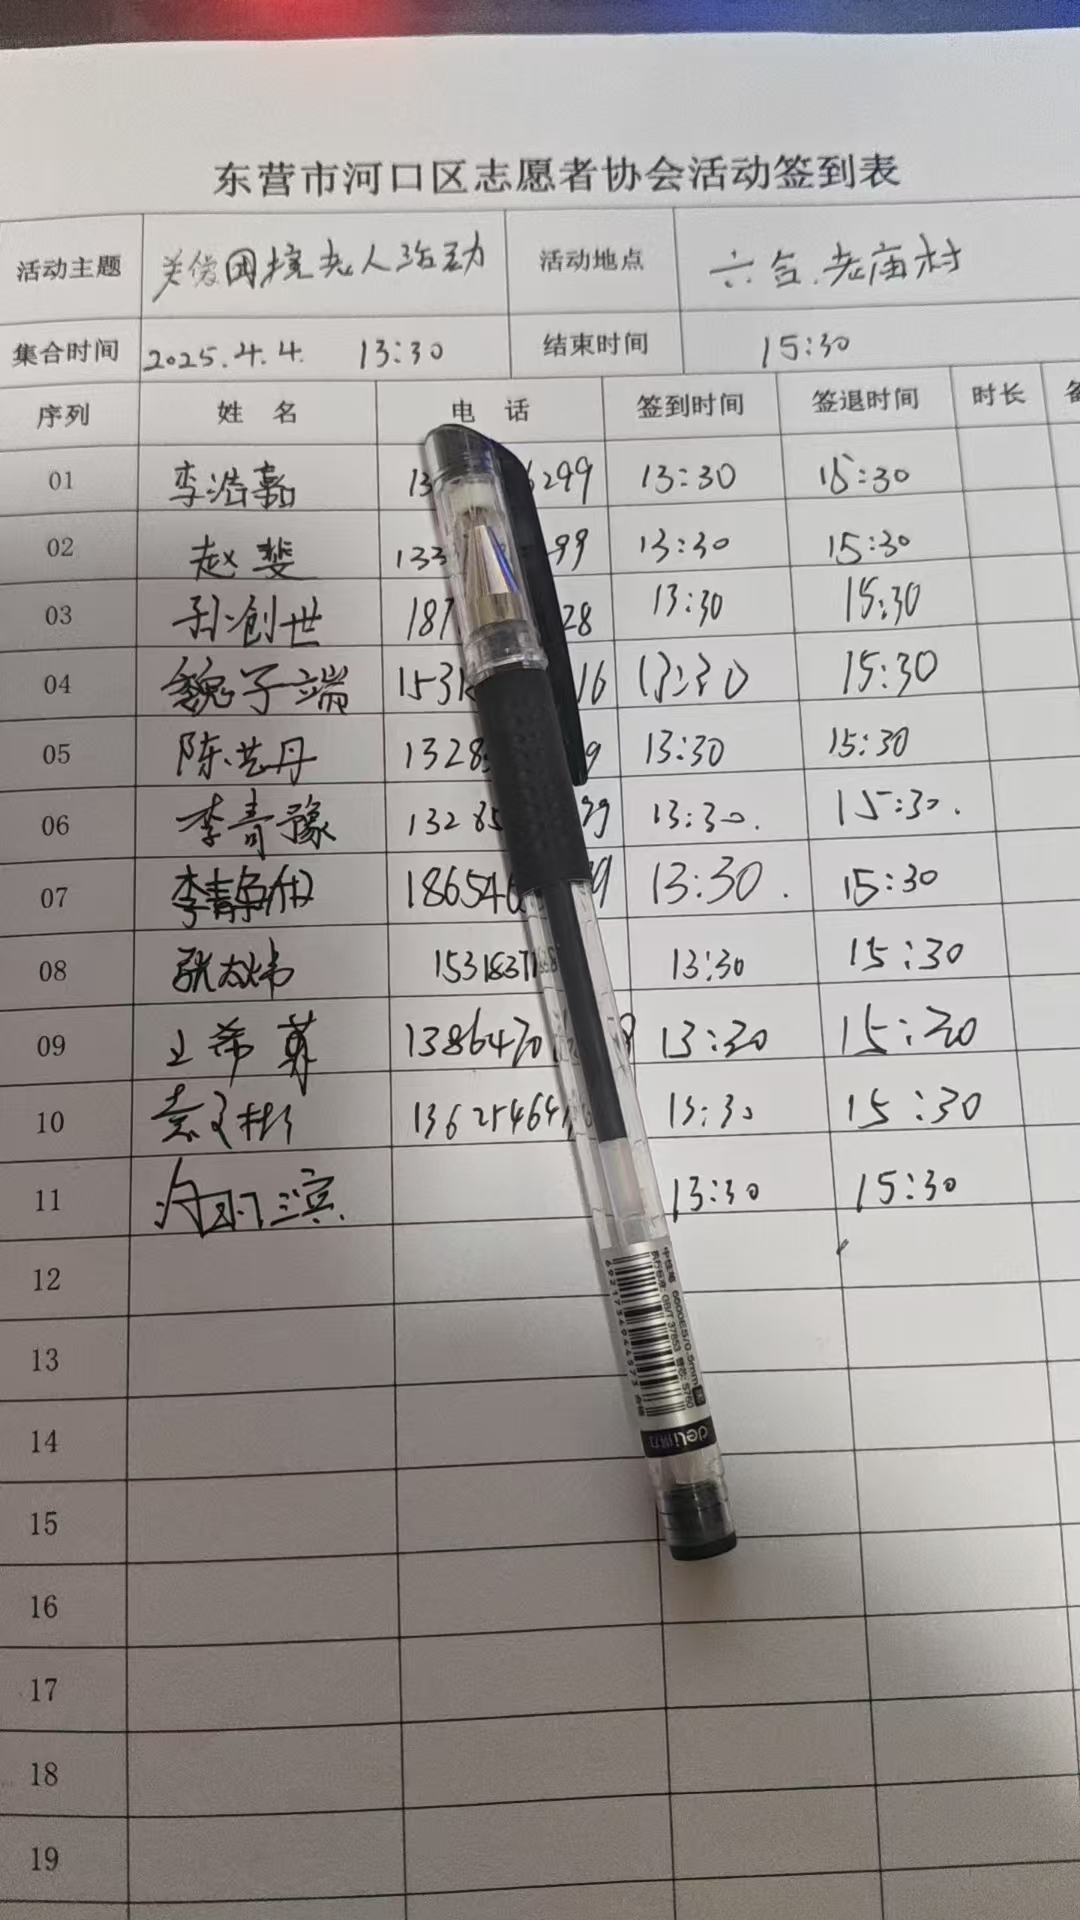 东营市河口区志愿者协会活动签到表
活动主题 关爱困境老人活动 活动地点 六合.老庙村
集合时间 2025.4.4. 13:30 结束时间 15:30
序列 姓 名 电 话 签到时间 签退时间 时长
01 李浩 13 6299 13:30 15:30
02 赵斐 133 99 13:30 15:30
03 孙创世 187 28 13:30 15:30
04 魏子端 1531 16 13:30 15:30
05 陈艺丹 1328 9 13:30 15:30
06 李青豫 13285 39 13:30. 15:30.
07 李青 186546 9 13:30. 15:30
08 张 1531837 13:30 15:30
09 王希 1386470 13:30 15:30
10 袁文彬 136254641 13:30 15:30
11 滨 13:30 15:30
12
13
14
15
16
17
18
19
中性笔 6600ES/0.5mm
6921734944573
deli得力